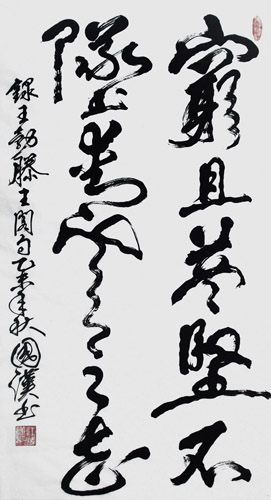 窮且益堅不
墜青雲之志
録王勃滕王閣句乙未年秋國漢書